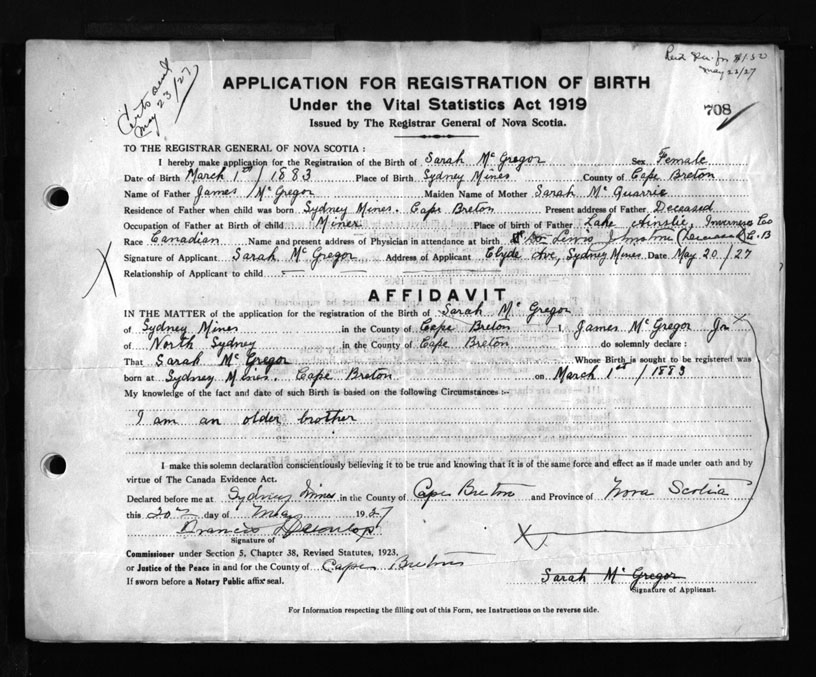 Certs and
May 23/27
May 23/27
APPLICATION FOR REGISTRATION OF BIRTH
Under the Vital Statistics Act 1919
Issued by The Registrar General of Nova Scotia.
708
TO THE REGISTRAR GENERAL OF NOVA SCOTIA :
I hereby make application for the Registration of the Birth of Sarah McGregor Sex Female
Date of Birth March 1st / 1883 Place of Birth Sydney Mines County of Cape Breton
Name of Father James McGregor Maiden Name of Mother Sarah McQuarrie
Residence of Father when child was born Sydney Mines. Cape Breton Present address of Father Deceased
Occupation of Father at Birth of child Miner Place of birth of Father Lake Ainslie, Inverness Co
Race Canadian Name and present address of Physician in attendance at birth Johnstone (Deceased) C.B
Signature of Applicant Sarah McGregor Address of Applicant Clyde Ave, Sydney Mines. Date May 20 / 27
Relationship of Applicant to child
AFFIDAVIT
IN THE MATTER of the application for the registration of the Birth of Sarah McGregor
of Sydney Mines in the County of Cape Breton I James McGregor Jr
of North Sydney in the County of Cape Breton do solemnly declare :
That Sarah McGregor Whose Birth is sought to be registered was
born at Sydney Mines. Cape Breton on March 1st / 1883
My knowledge of the fact and date of such Birth is based on the following Circumstances :-
I am an older brother
I make this solemn declaration conscientiously believing it to be true and knowing that it is of the same force and effect as if made under oath and by
virtue of The Canada Evidence Act.
Declared before me at Sydney Mines in the County of Cape Breton and Province of Nova Scotia
this 20th day of May 1927
Francis
Signature of
Commissioner under Section 5, Chapter 38, Revised Statutes, 1923.
or Justice of the Peace in and for the County of Cape Breton
If sworn before a Notary Public affix seal.
Sarah McGregor
Signature of Applicant.
For Information respecting the filling out of this Form, see Instructions on the reverse side.